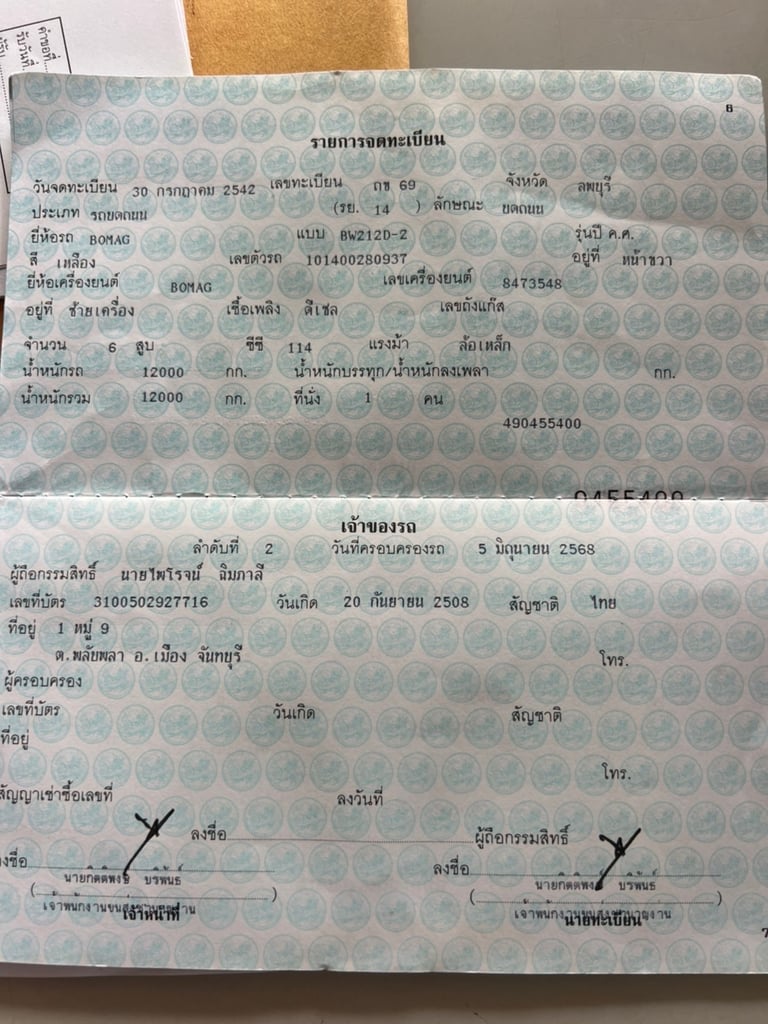 คำขอที่
รับวันที่
6
รายการจดทะเบียน
วันจดทะเบียน 30 กรกฎาคม 2542 เลขทะเบียน ถข 69 จังหวัด ลพบุรี
ประเภท รถบดถนน (รย. 14 ) ลักษณะ บดถนน
ยี่ห้อรถ BOMAG แบบ BW212D-2 รุ่นปี ค.ศ.
สี เหลือง เลขตัวรถ 101400280937 อยู่ที่ หน้าขวา
ยี่ห้อเครื่องยนต์ BOMAG เลขเครื่องยนต์ 8473548
อยู่ที่ ซ้ายเครื่อง เชื้อเพลิง ดีเซล เลขถังแก๊ส
จำนวน 6 สูบ ซีซี 114 แรงม้า ล้อเหล็ก
น้ำหนักรถ 12000 กก. น้ำหนักบรรทุก/น้ำหนักลงเพลา กก.
น้ำหนักรวม 12000 กก. ที่นั่ง 1 คน
490455400
เจ้าของรถ
ลำดับที่ 2 วันที่ครอบครองรถ 5 มิถุนายน 2568
ผู้ถือกรรมสิทธิ์ นายไพโรจน์ ฉิมภาลี
เลขที่บัตร 3100502927716 วันเกิด 20 กันยายน 2508 สัญชาติ ไทย
ที่อยู่ 1 หมู่ 9
ต.พลับพลา อ.เมือง จันทบุรี โทร.
ผู้ครอบครอง
เลขที่บัตร วันเกิด สัญชาติ
ที่อยู่
โทร.
สัญญาเช่าซื้อเลขที่ ลงวันที่
ลงชื่อ ผู้ถือกรรมสิทธิ์
ลงชื่อ ลงชื่อ
นายกิตติพงษ์ บริพันธ์ นายกิตติพงษ์ บริพันธ์
( ) ( )
เจ้าพนักงานขนส่งชำนาญงาน เจ้าพนักงานขนส่งชำนาญงาน
เจ้าหน้าที่ นายทะเบียน
7